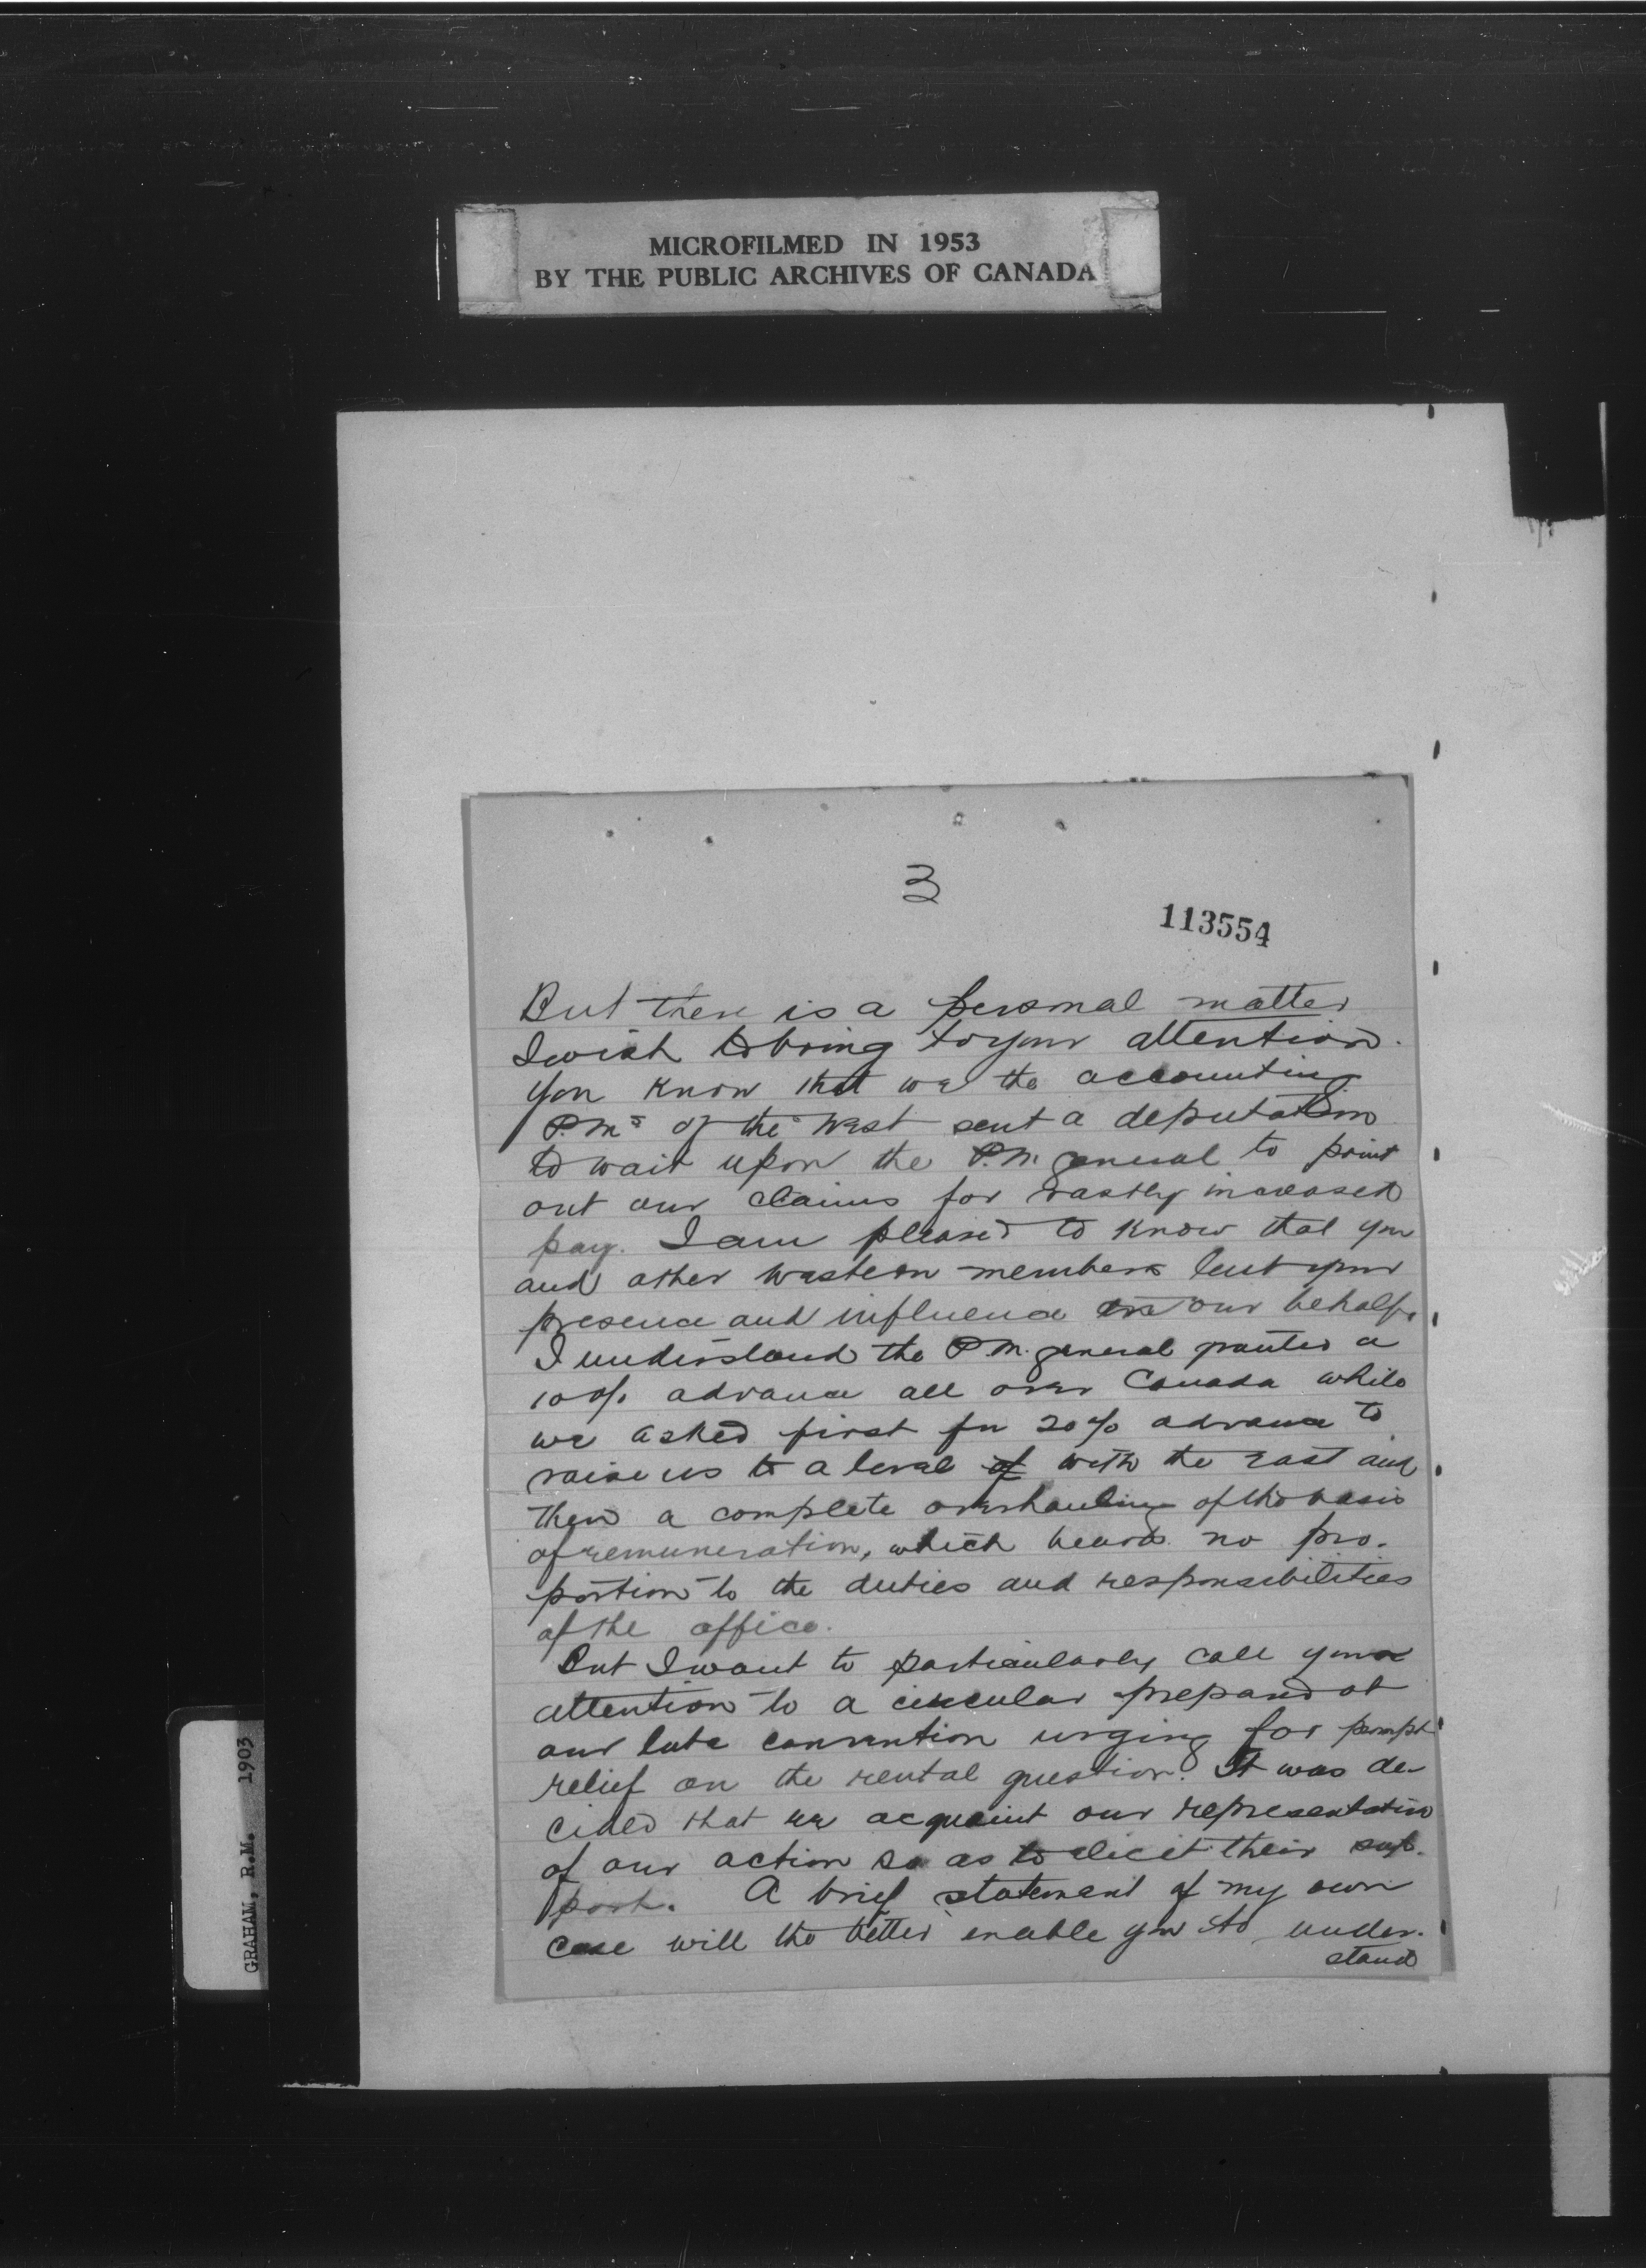 MICROFILMED IN 1953
BY THE PUBLIC ARCHIVES OF CANADA
3
113554
But there is a personal matter
I wish to bring to your attention.
You know that we the accounting
P.Ms of the West sent a deputation
to wait upon the P.M. General to point
out our claims for vastly increased
pay. I am pleased to know that you
and other western members lent your
presence and influence on our behalf.
I understand the P.M. General granted a
10% advance all over Canada while
we asked first for 20% advance to
raise us to a level of with the East and
then a complete overhauling of the basis
of remuneration, which bears no pro-
portion to the duties and responsibilities
of the office.
But I want to particularly call your
attention to a circular prepared at
our late convention urging for prompt
relief on the rental question. It was de-
cided that we acquaint our representative
of our action so as to elicit their sup-
port. A brief statement of my own
case will the better enable you to under-
stand
GRAHAM, R.M. 1903